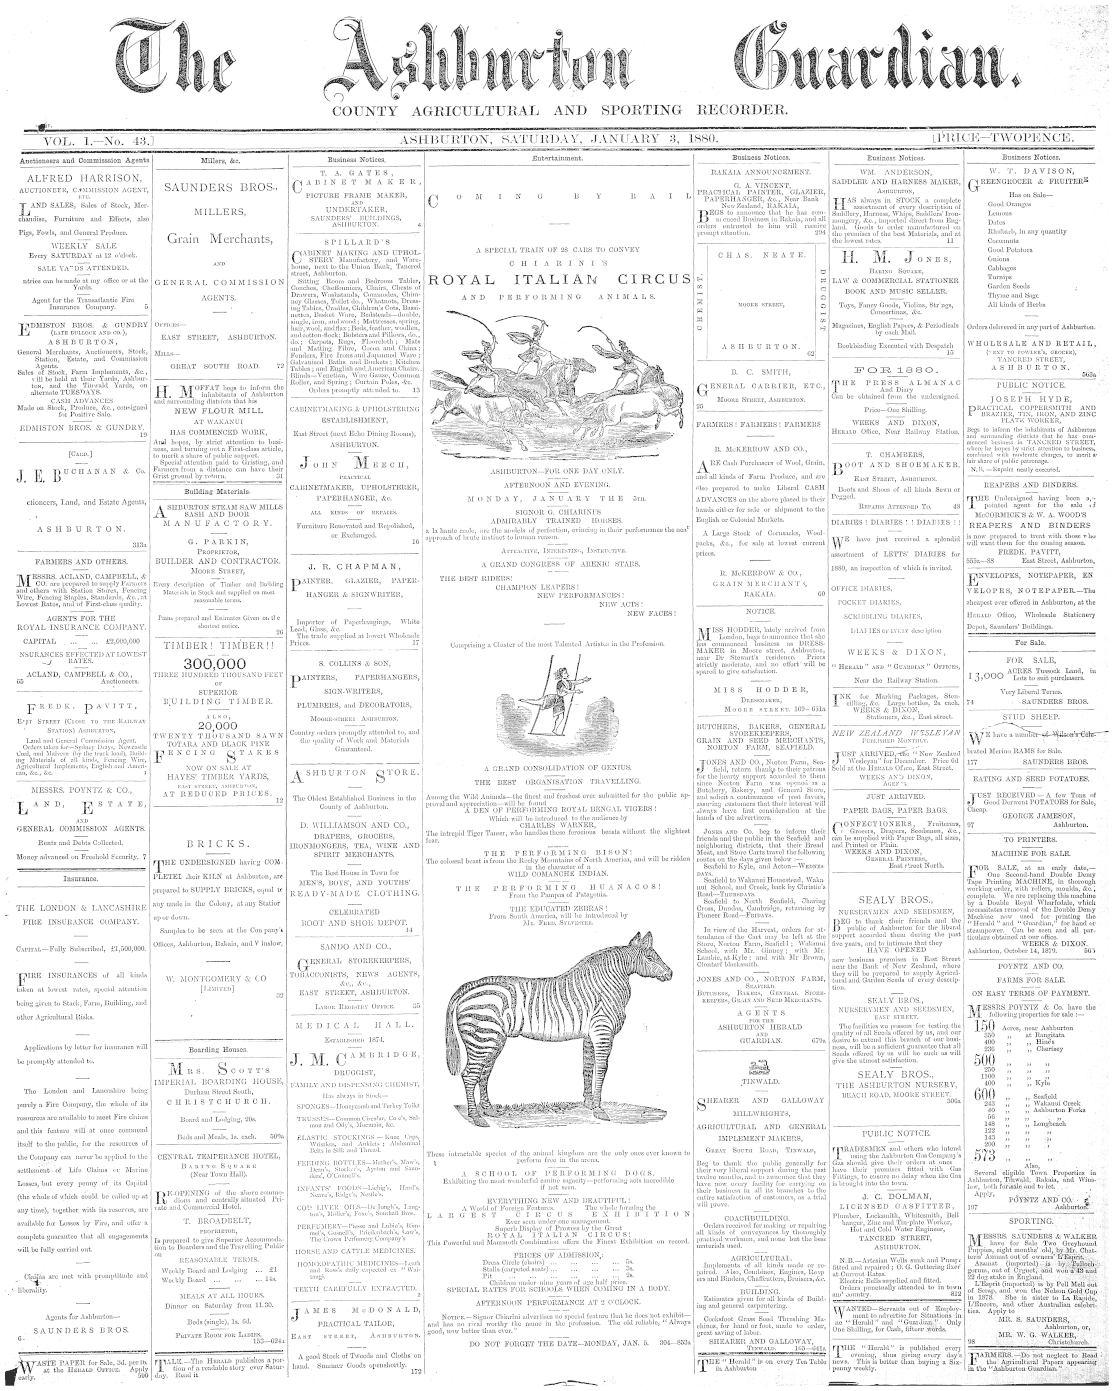 The Ashburton Guardian.
COUNTY AGRICULTURAL AND SPORTING RECORDER.
VOL. 1.—No. 43.]
ASHBURTON, SATURDAY, JANUARY 3, 1880.
[PRICE—TWOPENCE.
Auctioneers and Commission Agents
ALFRED HARRISON,
AUCTIONEER, COMMISSION AGENT,
ETC.
LAND SALES, Sales of Stock, Mer-
chandise, Furniture and Effects, also
Pigs, Fowls, and General Produce.
WEEKLY SALE
Every SATURDAY at 12 o'clock.
SALE YARDS ATTENDED.
Agent for the Transatlantic Fire
Insurance Company. 5
EDMISTON BROS. & GUNDRY
(LATE BULLOCK AND CO.),
ASHBURTON,
General Merchants, Auctioneers, Stock,
Station, Estate, and Commission
Agents.
CASH ADVANCES
Made on Stock, Produce, &c., consigned
for Positive Sale.
EDMISTON BROS. & GUNDRY.
19
[CARD.]
J. E. BUCHANAN & Co.
ctioneers, Land, and Estate Agents,
ASHBURTON.
313a
FARMERS AND OTHERS.
MESSRS. ACLAND, CAMPBELL, &
CO. are prepared to supply Farmers
and others with Station Stores, Fencing
Wire, Fencing Staples, Standards, &c., at
Lowest Rates, and of First-class quality.
AGENTS FOR THE
ROYAL INSURANCE COMPANY.
CAPITAL ... ... £2,000,000
NSURANCES EFFECTED AT LOWEST
RATES.
ACLAND, CAMPBELL & CO.,
65 Auctioneers.
FREDK. PAVITT,
EAST STREET (CLOSE TO THE RAILWAY
STATION) ASHBURTON,
MESSRS. POYNTZ & CO.,
LAND, ESTATE,
AND
GENERAL COMMISSION AGENTS.
Rents and Debts Collected.
Money advanced on Freehold Security. 7
Insurance.
THE LONDON & LANCASHIRE
FIRE INSURANCE COMPANY.
CAPITAL—Fully Subscribed, £1,500,000.
FIRE INSURANCES of all kinds
taken at lowest rates, special attention
being given to Stack, Farm, Building, and
other Agricultural Risks.
Applications by letter for insurance will
be promptly attended to.
The London and Lancashire being
purely a Fire Company, the whole of its
resources are available to meet Fire claims
and this feature will at once commend
itself to the public, for the resources of
the Company can never be applied to the
settlement of Life Claims or Marine
Losses, but every penny of its Capital
(the whole of which could be called up at
any time), together with its reserves, are
available for Losses by Fire, and offer a
complete guarantee that all engagements
will be fully carried out.
Claims are met with promptitude and
liberality.
Agents for Ashburton—
SAUNDERS BROS.
6
WASTE PAPER for Sale, 3d. per lb.
at the HERALD OFFICE. Apply
early.
Millers, &c.
SAUNDERS BROS.,
MILLERS,
Grain Merchants,
AND
GENERAL COMMISSION
AGENTS.
OFFICES—
EAST STREET, ASHBURTON.
MILLS—
GREAT SOUTH ROAD. 72
H. MOFFAT begs to inform the
inhabitants of Ashburton
and surrounding districts that his
NEW FLOUR MILL
AT WAKANUI
HAS COMMENCED WORK,
And hopes, by strict attention to busi-
ness, and turning out a First-class article,
to merit a share of public support.
Special attention paid to Gristing, and
Farmers from a distance can have their
Grist ground by return. 31
Building Materials
ASHBURTON STEAM SAW MILLS
SASH AND DOOR
MANUFACTORY.
G. PARKIN,
PROPRIETOR,
BUILDER AND CONTRACTOR.
MOORE STREET,
Every description of Timber and Building
Materials in Stock and supplied on most
reasonable terms.
Plans prepared and Estimates Given on the
shortest notice.
26
TIMBER! TIMBER!!
300,000
THREE HUNDRED THOUSAND FEET
OF
SUPERIOR
BUILDING TIMBER.
ALSO,
20,000
TWENTY THOUSAND SAWN
TOTARA AND BLACK PINE
FENCING STAKES
NOW ON SALE AT
HAYES' TIMBER YARDS,
EAST STREET, ASHBURTON,
AT REDUCED PRICES.
12
BRICKS.
THE UNDERSIGNED having COM-
PLETED their KILN at Ashburton, are
prepared to SUPPLY BRICKS, equal to
any made in the Colony, at any Station
up or down.
Samples to be seen at the Company's
Offices, Ashburton, Rakaia, and Winslow.
W. MONTGOMERY & CO
[LIMITED]
32
Boarding Houses.
MRS. SCOTT'S
IMPERIAL BOARDING HOUSE,
Durham Street South,
CHRISTCHURCH.
Board and Lodging, 20s.
Beds and Meals, 1s. each. 509a
CENTRAL TEMPERANCE HOTEL,
BARING SQUARE
(Near Town Hall).
REOPENING of the above commo-
dious and centrally situated Pri-
vate and Commercial Hotel.
T. BROADBELT,
PROPRIETOR,
Is prepared to give Superior Accommoda-
tion to Boarders and the Travelling Public
REASONABLE TERMS.
Weekly Board and Lodging ... £1
Weekly Board ... ... ... 14s.
MEALS AT ALL HOURS.
Dinner on Saturday from 11.30.
Beds (single), 1s. 6d.
PRIVATE ROOM FOR LADIES.
153—624a
TALK.—The HERALD publishes a por-
tion of a readable story every Satur-
day. Read it
Business Notices.
T. A. GATES,
CABINET MAKER,
PICTURE FRAME MAKER,
AND
UNDERTAKER,
SAUNDERS' BUILDINGS,
ASHBURTON. 4
SPILLARD'S
CABINET MAKING AND UPHOL-
STERY Manufactory, and Ware-
house, next to the Union Bank, Tancred
street, Ashburton.
Orders promptly attended to. 13
CABINETMAKING & UPHOLSTERING
ESTABLISHMENT,
East Street (next Echo Dining Rooms),
ASHBURTON.
JOHN MEECH,
PRACTICAL
CABINETMAKER, UPHOLSTERER,
PAPERHANGER, &c.
ALL KINDS OF REPAIRS.
Furniture Renovated and Repolished,
or Exchanged.
16
J. R. CHAPMAN,
PAINTER, GLAZIER, PAPER-
HANGER & SIGNWRITER,
Importer of Paperhangings, White
Lead, Glass, &c.
The trade supplied at lowest Wholesale
Prices. 17
S. COLLINS & SON,
PAINTERS, PAPERHANGERS,
SIGN-WRITERS,
PLUMBERS, and DECORATORS,
MOORE-STREET ASHBURTON.
Country orders promptly attended to, and
the quality of Work and Materials
Guaranteed.
ASHBURTON STORE.
The Oldest Established Business in the
County of Ashburton.
D. WILLIAMSON AND CO.,
DRAPERS, GROCERS,
IRONMONGERS, TEA, WINE AND
SPIRIT MERCHANTS.
The Best House in Town for
MEN'S, BOYS', AND YOUTHS'
READY-MADE CLOTHING.
CELEBRATED
BOOT AND SHOE DEPOT.
14
SANDO AND CO.,
GENERAL STOREKEEPERS,
TOBACCONISTS, NEWS AGENTS,
&c., &c.,
EAST STREET, ASHBURTON.
LABOR REGISTRY OFFICE. 35
MEDICAL HALL.
ESTABLISHED 1874.
J. M. CAMBRIDGE,
DRUGGIST,
FAMILY AND DISPENSING CHEMIST,
Has always in Stock—
SPONGES—Honeycomb and Turkey Toilet
HORSE AND CATTLE MEDICINES.
TEETH CAREFULLY EXTRACTED.
JAMES McDONALD,
PRACTICAL TAILOR,
EAST STREET, ASHBURTON.
A good Stock of Tweeds and Cloths on
hand. Summer Goods opensheetly.
172
Entertainment.
COMING BY RAIL
A SPECIAL TRAIN OF 28 CARS TO CONVEY
CHIARINI'S
ROYAL ITALIAN CIRCUS
AND PERFORMING ANIMALS.
ASHBURTON—FOR ONE DAY ONLY.
AFTERNOON AND EVENING.
MONDAY, JANUARY THE 5TH.
SIGNOR G. CHIARINI'S
ADMIRABLY TRAINED HORSES.
a la haute ecole, are the models of perfection, evincing in their performance the nearest
approach of brute instinct to human reason.
ATTRACTIVE, INTERESTING, INSTRUCTIVE.
A GRAND CONGRESS OF ARENIC STARS.
THE BEST RIDERS!
CHAMPION LEAPERS!
NEW PERFORMANCES!
NEW ACTS!
NEW FACES!
Comprising a Cluster of the most Talented Artistes in the Profession.
A GRAND CONSOLIDATION OF GENIUS.
THE BEST ORGANISATION TRAVELLING.
Among the Wild Animals—the finest and freshest ever submitted for the public ap-
proval and appreciation—will be found
A DEN OF PERFORMING ROYAL BENGAL TIGERS!
Which will be introduced to the audience by
CHARLES WARNER,
The intrepid Tiger Tamer, who handles these ferocious beasts without the slightest
fear.
THE PERFORMING BISON!
The colossal beast is from the Rocky Mountains of North America, and will be ridden
in the character of a
WILD COMANCHE INDIAN.
THE PERFORMING HUANACOS!
From the Pampas of Patagonia.
THE EDUCATED ZEBRAS!
From South America, will be introduced by
MR. FRED. SYLVESTER.
These intractable species of the animal kingdom are the only ones ever known to
perform free in the arena.
A SCHOOL OF PERFORMING DOGS.
Exhibiting the most wonderful canine sagacity—performing acts incredible
if not seen.
EVERYTHING NEW AND BEAUTIFUL!
A World of Foreign Features. The whole forming the
LARGEST CIRCUS EXHIBITION
Ever seen under one management.
Superb Display of Prowess by the Great
ROYAL ITALIAN CIRCUS!
This Powerful and Mammoth Combination offers the Finest Exhibition on record.
PRICES OF ADMISSION,
Dress Circle (chairs) ... ... ... ... 5s.
Stalls (carpeted seats) ... ... ... ... 3s.
Pit ... ... ... ... 2s.
Children under nine years of age half price.
SPECIAL RATES FOR SCHOOLS WHEN COMING IN A BODY.
AFTERNOON PERFORMANCE AT 2 O'CLOCK.
NOTICE.—Signor Chiarini advertises no special feature that he does not exhibit—
and has no rival worthy the name in the profession. The old reliable, "Always
good, now better than ever."
DO NOT FORGET THE DATE—MONDAY, JAN. 5. 304—853a
Business Notices.
RAKAIA ANNOUNCEMENT.
G. A. VINCENT,
PRACTICAL PAINTER, GLAZIER,
PAPERHANGER, &c., Near Bank
New Zealand, RAKAIA,
BEGS to announce that he has com-
menced Business in Rakaia, and all
orders entrusted to him will receive
prompt attention. 294
CHAS. NEATE.
CHEMIST.
DRUGGIST
MOORE STREET,
ASHBURTON.
62
B. C. SMITH,
GENERAL CARRIER, ETC.,
MOORE STREET, ASHBURTON.
25
FARMERS! FARMERS! FARMERS
B. McKERROW AND CO.,
ARE Cash Purchasers of Wool, Grain,
and all kinds of Farm Produce, and are
also prepared to make Liberal CASH
ADVANCES on the above placed in their
hands either for sale or shipment to the
English or Colonial Markets.
A Large Stock of Cornsacks, Wool-
packs, &c., for sale at lowest current
prices.
R. McKERROW & CO.,
GRAIN MERCHANTS,
RAKAIA. 60
NOTICE.
MISS HODDER, lately arrived from
London, begs to announce that she
has commenced business as DRESS-
MAKER in Moore street, Ashburton,
near Dr Stewart's residence. Prices
strictly moderate, and no effort will be
spared to give satisfaction.
MISS HODDER,
DRESSMAKER,
MOORE STREET. 169—651a
BUTCHERS, BAKERS, GENERAL
STOREKEEPERS,
GRAIN AND SEED MERCHANTS,
NORTON FARM, SEAFIELD.
JONES AND CO., Norton Farm, Sea-
field, return thanks to their patrons
for the hearty support accorded to them
since Norton Farm was opened as a
Butchery, Bakery, and General Store,
and solicit a continuance of past favors,
assuring customers that their interest will
always have first consideration at the
hands of the advertisers.
JONES AND CO. beg to inform their
friends and the public in the Seafield and
neighboring districts, that their Bread
Meat, and Store Carts travel the following
routes on the days given below:—
Seafield to Kyle, and Acton—WEDNES-
DAYS.
Seafield to Wakanui Homestead, Waka-
nui School, and Creek, back by Christie's
Road—THURSDAYS.
Seafield to North Seafield, Charing
Cross, Dundas, Cambridge, returning by
Pioneer Road—FRIDAYS.
In view of the Harvest, orders for at-
tendance of the Cart may be left at the
Store, Norton Farm, Seafield; Wakanui
School, with Mr. Ginney; with Mr.
Lambie, at Kyle; and with Mr Brown,
JONES AND CO., NORTON FARM,
SEAFIELD.
BUTCHERS, BAKERS, GENERAL STORE-
KEEPERS, GRAIN AND SEED MERCHANTS.
AGENTS
FOR THE
ASHBURTON HERALD
AND
GUARDIAN. 679a
TINWALD.
SHEARER AND GALLOWAY
MILLWRIGHTS,
AGRICULTURAL AND GENERAL
IMPLEMENT MAKERS,
GREAT SOUTH ROAD, TINWALD,
Beg to thank the public generally for
their very liberal support during the past
twelve months, and to announce that they
now have every facility for carrying on
their business in all its branches to the
entire satisfaction of customers, on a trial
will prove.
COACHBUILDING.
Orders received for making or repairing
all kinds of conveyances by thoroughly
practical workmen, and none but the best
materials used.
AGRICULTURAL.
Implements of all kinds made or re-
paired. Also, Combines, Engines, Reap-
ers and Binders, Chaffcutters, Drainers, &c.
BUILDING.
Estimates given for all kinds of Build-
ing and general carpentering.
Cocksfoot Grass Seed Thrashing Ma-
chines, for hand or foot, made to order,
great saving of labor.
SHEARER AND GALLOWAY,
TINWALD. 165—641a
THE "Herald" is on every Tea Table
in Ashburton
Business Notices.
WM. ANDERSON,
SADDLER AND HARNESS MAKER,
ASHBURTON,
HAS always in STOCK a complete
assortment of every description of
Saddlery, Harness, Whips, Saddlers' Iron-
mongery, &c., imported direct from Eng-
land. Goods to order manufactured on
the premises of the best Materials, and at
the lowest rates. 11
H. M. JONES,
BARING SQUARE,
LAW & COMMERCIAL STATIONER
BOOK AND MUSIC SELLER.
Toys, Fancy Goods, Violins, Strings,
Concertinas, &c.
Magazines, English Papers, & Periodicals
by each Mail.
Bookbinding Executed with Despatch
15
FOR 1880.
THE PRESS ALMANAC
And Diary
Can be obtained from the undersigned.
Price—One Shilling.
WEEKS AND DIXON,
HERALD Office, Near Railway Station.
T. CHAMBERS,
BOOT AND SHOEMAKER,
EAST STREET, ASHBURTON.
Boots and Shoes of all kinds Sewn or
Pegged.
REPAIRS ATTENDED TO. 48
DIARIES! DIARIES!! DIARIES!!!
WE have just received a splendid
assortment of LETTS' DIARIES for
1880, an inspection of which is invited.
OFFICE DIARIES,
POCKET DIARIES,
SCRIBBLING DIARIES,
DIARIES of every description
WEEKS & DIXON,
"HERALD" AND "GUARDIAN" OFFICES,
Near the Railway Station.
INK for Marking Packages, Sten-
cilling, &c. Large bottles, 2s. each.
WEEKS & DIXON,
Stationers, &c., East street.
NEW ZEALAND WESLEYAN
PUBLISHED MONTHLY.
JUST ARRIVED, the "New Zealand
Wesleyan" for December. Price 6d
Sold at the HERALD Office, East Street.
WEEKS AND DIXON,
AGENTS.
JUST ARRIVED.
PAPER BAGS, PAPER BAGS.
CONFECTIONERS, Fruiterers,
Grocers, Drapers, Seedsmen, &c.,
can be supplied with Paper Bags, all sizes,
and Printed or Plain.
WEEKS AND DIXON,
GENERAL PRINTERS,
East street North.
SEALY BROS.,
NURSERYMEN AND SEEDSMEN,
BEG to thank their friends and the
public of Ashburton for the liberal
support awarded them during the past
five years, and to intimate that they
HAVE OPENED
new business premises in East Street
near the Bank of New Zealand, where
they will be prepared to supply Agricul-
tural and Garden Seeds of every descrip-
tion.
SEALY BROS.,
NURSERYMEN AND SEEDSMEN,
EAST STREET.
The facilities we possess for testing the
quality of all Seeds offered by us, and our
desire to extend this branch of our busi-
ness, will be a sufficient guarantee that all
Seeds offered by us will be such as will
give the utmost satisfaction.
SEALY BROS.,
THE ASHBURTON NURSERY,
BEACH ROAD, MOORE STREET.
306a
PUBLIC NOTICE
TRADESMEN and others who intend
using the Ashburton Gas Company's
Gas should give their orders at once
have their premises fitted with Gas
Fittings, to ensure no delay when the Gas
is brought into the town.
J. C. DOLMAN,
LICENSED GASFITTER,
Plumber, Locksmith, Whitesmith, Bell-
hanger, Zinc and Tin-plate Worker,
Hot and Cold Water Engineer,
TANCRED STREET,
ASHBURTON.
N.B.—Artesian Wells sunk and Pumps
fitted and repaired; O. G. Guttering floor
at Current rates.
Electric Bells supplied and fitted.
Orders punctually attended to in town
and country. 812
WANTED—Servants out of Employ-
ment to advertise for Situations in
the "Herald" and "Guardian." Only
One Shilling, for Cash, fifteen words.
THE "Herald" is published every
evening, thus giving every day's
news. This is better than buying a Six-
penny weekly.
Business Notices.
W. T. DAVISON,
GREENGROCER & FRUITER
Has on Sale—
Good Oranges
Lemons
Dates
Rhubarb, in any quantity
Cocoanuts
Good Potatoes
Onions
Cabbages
Turnips
Garden Seeds
Thyme and Sage
All kinds of Herbs
Orders delivered in any part of Ashburton.
WHOLESALE AND RETAIL,
(NEXT TO FOWLER'S, GROCER),
TANCRED STREET,
ASHBURTON.
563a
PUBLIC NOTICE.
JOSEPH HYDE,
PRACTICAL COPPERSMITH AND
BRAZIER, TIN, IRON, AND ZINC
PLATE WORKER,
Begs to inform the inhabitants of Ashburton
and surrounding districts that he has com-
menced business in TANCRED STREET,
where he hopes by strict attention to business,
combined with moderate charges, to merit a
fair share of public patronage.
N.B.—Repairs neatly executed.
REAPERS AND BINDERS.
THE Undersigned having been ap-
pointed agent for the sale of
McCORMICK'S & W. A. WOOD'S
REAPERS AND BINDERS
is now prepared to treat with those who
will want them for the coming season.
FREDK. PAVITT,
555a—88 East Street, Ashburton,
ENVELOPES, NOTEPAPER, EN
VELOPES, NOTEPAPER.—The
cheapest ever offered in Ashburton, at the
HERALD Office, Wholesale Stationery
Depot, Saunders' Buildings.
For Sale.
FOR SALE,
13,000 ACRES Tussock Land, in
Lots to suit purchasers.
Very Liberal Terms.
74 SAUNDERS BROS.
STUD SHEEP.
WE have a number of Wilson's Cele-
brated Merino RAMS for Sale.
177 SAUNDERS BROS.
EATING AND SEED POTATOES.
JUST RECEIVED—A few Tons of
Good Derwent POTATOES for Sale,
Cheap.
GEORGE JAMESON,
97 Ashburton.
TO PRINTERS.
MACHINE FOR SALE.
FOR SALE, at an early date,—
One Second-hand Double Demy
Tape Printing MACHINE, in thorough
working order, with rollers, moulds, &c.,
complete. We are replacing this machine
by a Double Royal Wharfedale, which
necessitates removal of the Double Demy
Machine now used for printing the
"Herald" and "Guardian," for hand or
steampower. Can be seen and all par-
ticulars obtained at our office.
WEEKS & DIXON.
Ashburton, October 14, 1879. 565
POYNTZ AND CO.
FARMS FOR SALE.
ON EASY TERMS OF PAYMENT.
MESSRS POYNTZ & Co. have the
following properties for sale:—
150 Acres, near Ashburton
350 „ at Rangitata
400 „ „ Hinds
236 „ „ Chertsey
500 „ „ „
250 „ „ „
1100 „ „ „
400 „ „ Kyle
600 „ „ Seafield
243 „ „ Wakanui Creek
40 „ „ Ashburton Forks
56 „ „ „
148 „ „ Longbeach
122 „ „ „
143 „ „ „
200 „ „ „
573 „ „ „
Also,
Several eligible Town Properties in
Ashburton, Tinwald, Rakaia, and Wins-
low, both for sale and to let.
Apply,
POYNTZ AND CO.
197 Ashburton.
SPORTING.
MESSRS. SAUNDERS & WALKER
have for Sale Two Greyhound
Puppies, eight months' old, by Mr. Chat-
L'Esprit (imported) is by Pell Mell out
of Scrap, and won the Nelson Gold Cup
in 1878. She is sister to La Rapide,
L'Encore, and other Australian celebri-
ties. Apply to
MR. S. SAUNDERS,
Ashburton, or,
MR. W. G. WALKER,
98 Christchurch.
FARMERS.—Do not neglect to Read
the Agricultural Papers appearing
in the "Ashburton Guardian."